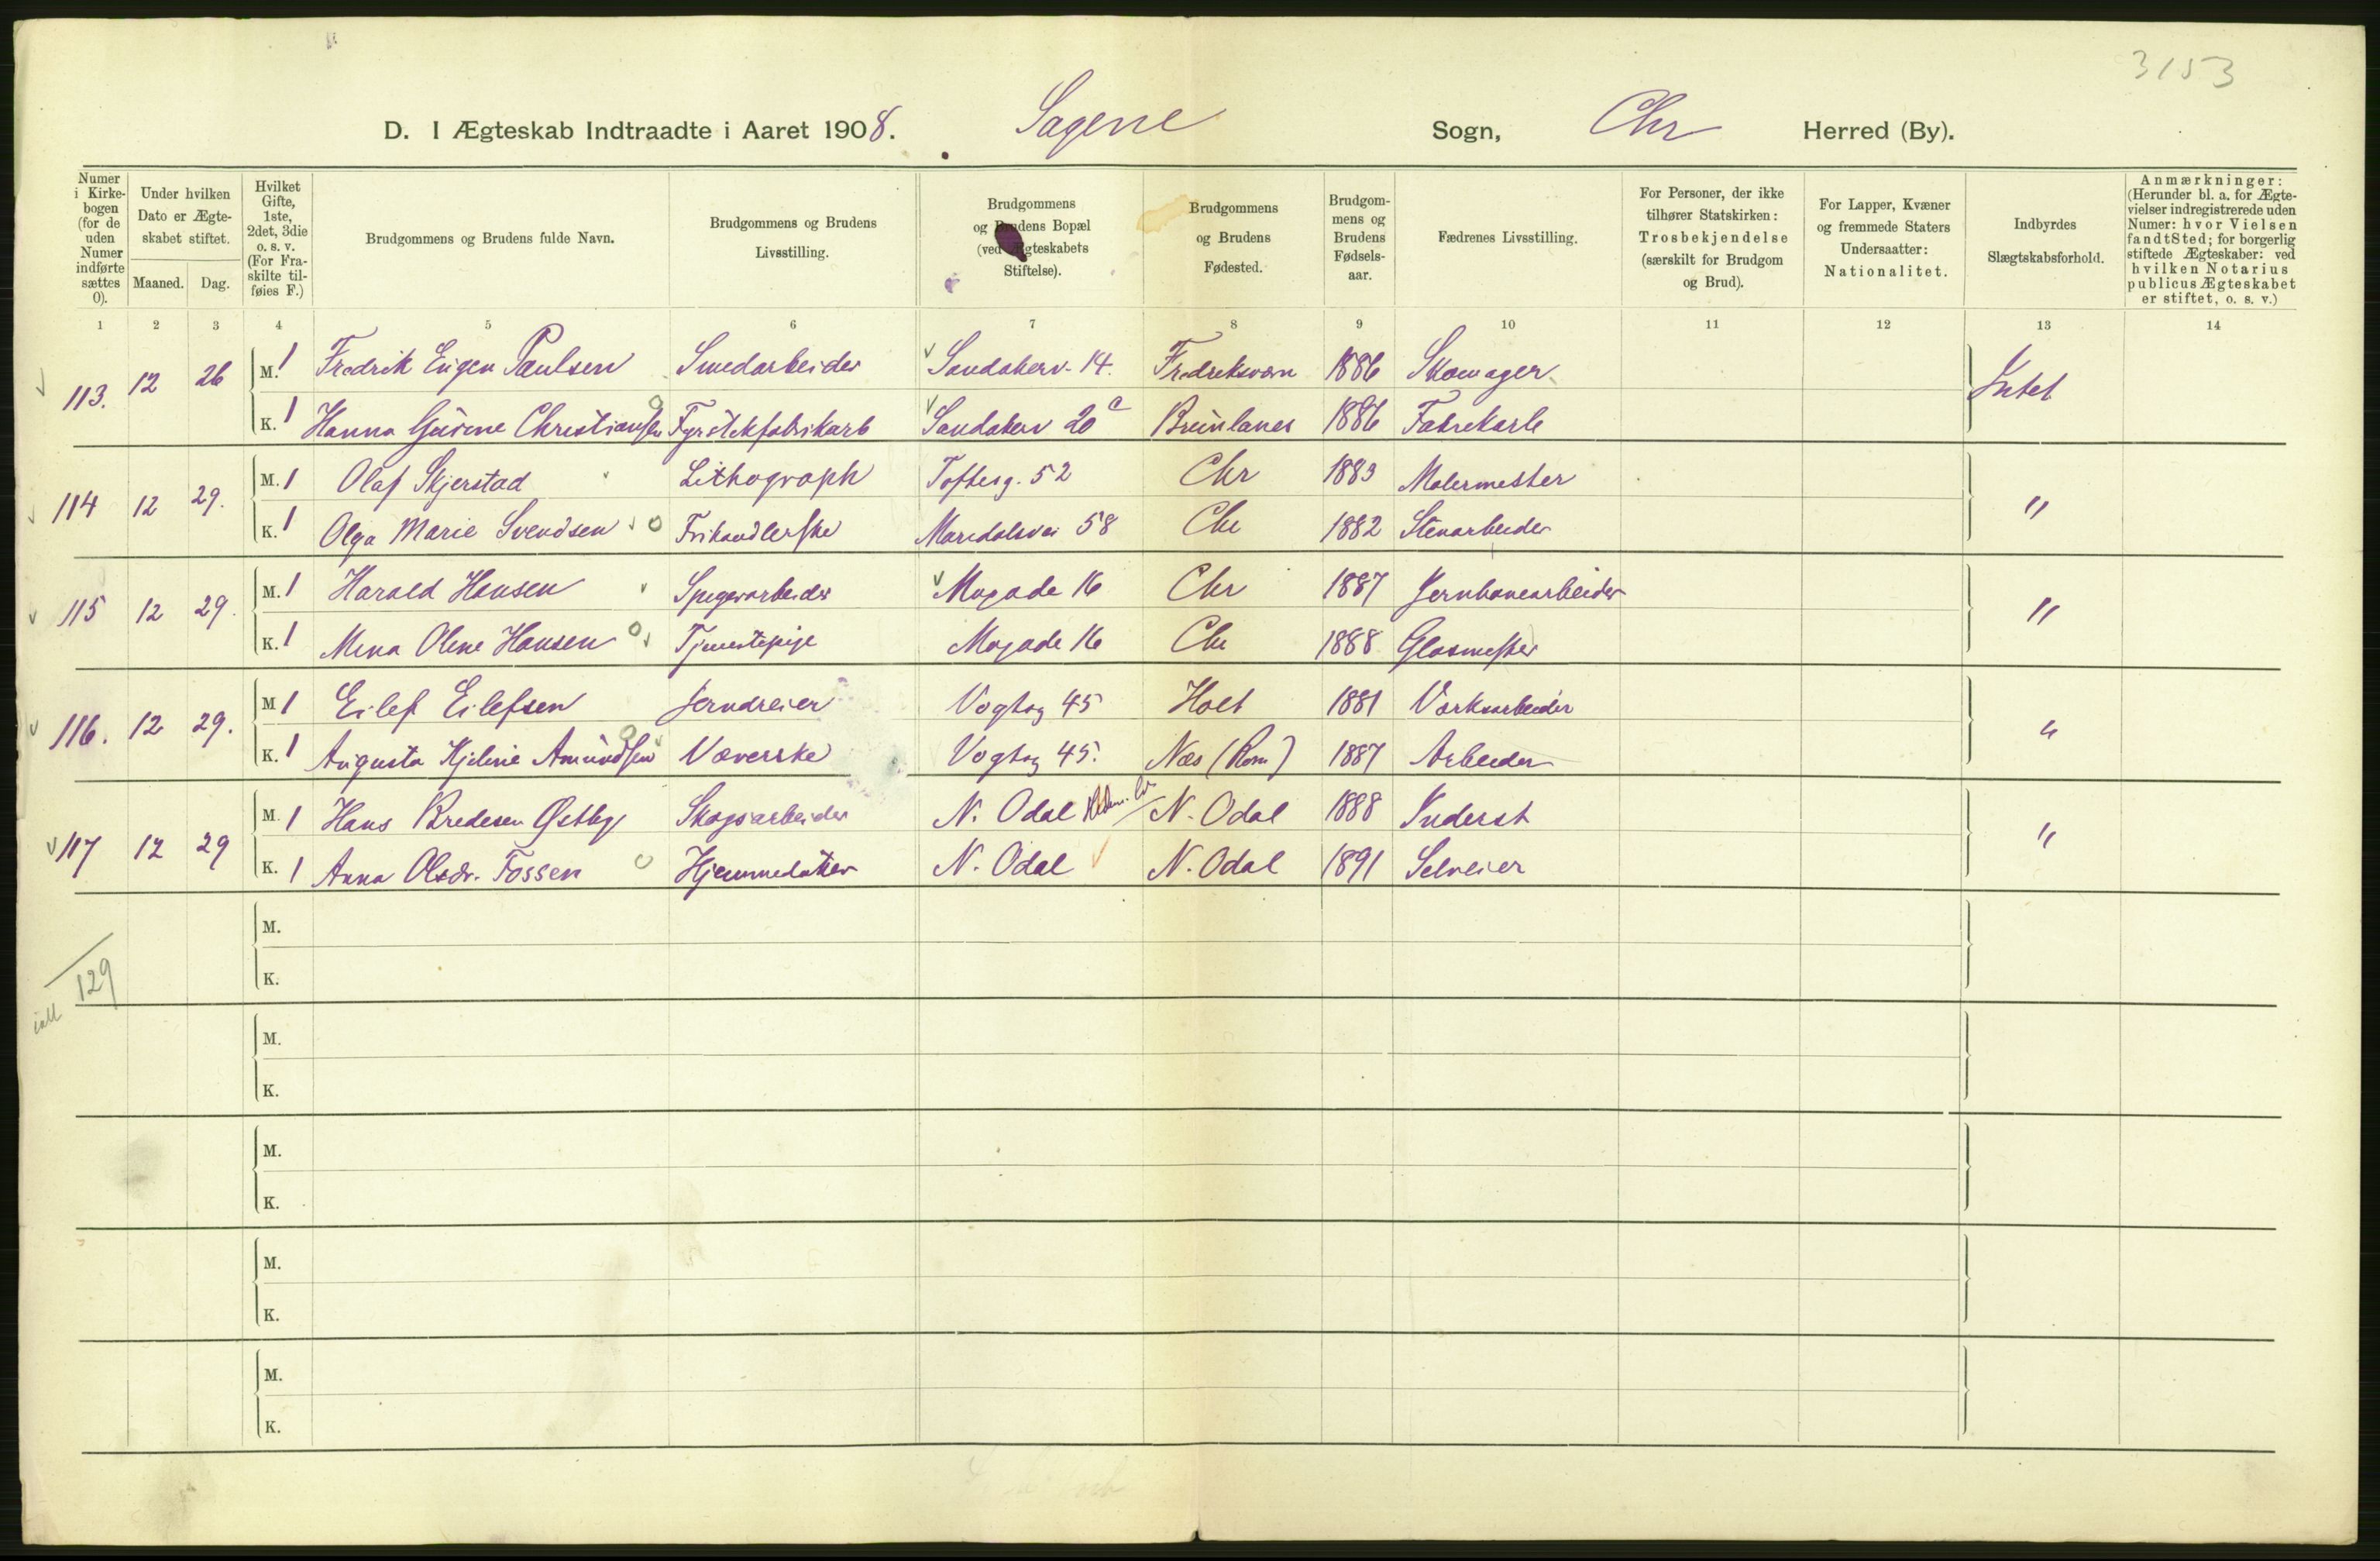 3153
D. I Ægteskab Indtraadte i Aaret 1908. Sagene Sogn, Chr Herred (By).
Numer i Kirkebogen (for de uden Numer indførte sættes 0).
Under hvilken Dato er Ægteskabet stiftet.
Maaned. Dag.
Hvilket Gifte, 1ste, 2det, 3die o. s. v. (For Fraskilte tilføies F.)
Brudgommens og Brudens fulde Navn.
Brudgommens og Brudens Livsstilling.
Brudgommens og Brudens Bopæl (ved Ægteskabets Stiftelse).
Brudgommens og Brudens Fødested.
Brudgommens og Brudens Fødselsaar.
Fædrenes Livsstilling.
For Personer, der ikke tilhører Statskirken: Trosbekjendelse (særskilt for Brudgom og Brud).
For Lapper, Kvæner og fremmede Staters Undersaatter: Nationalitet.
Indbyrdes Slægtskabsforhold.
Anmærkninger: (Herunder bl. a. for Ægtevielser indregistrerede uden Numer: hvor Vielsen fandt Sted; for borgerlig stiftede Ægteskaber: ved hvilken Notarius publicus Ægteskabet er stiftet, o. s. v.)
1 2 3 4 5 6 7 8 9 10 11 12 13 14
113. 12 26 M. 1 Fredrik Eugen Paulsen Smedarbeider Sandakerv. 14. Fredriksværn 1886 Skomager Intet
K. 1 Hanna Gurine Christiansen Fyrstikfabrikarb Sandakerv 20 a Brunlanes 1886 Fabrikarb
114 12 29. M. 1 Olaf Skjerstad Lithograph Toftesg. 52 Chr 1883 Malermester "
K. 1 Olga Marie Svendsen Frihandlerske Maridalsvei 58 Chr 1882 Stenarbeider
115 12 29. M. 1 Harald Hansen Spigerarbeider Mogade 16 Chr 1887 Jernbanearbeider "
K. 1 Mina Oline Hansen Tjenestepige Mogade 16 Chr 1888 Glasmester
116. 12 29. M 1 Eilef Eilefsen Jerndreier Vogtsg 45 Holt 1881 Værksarbeider "
K. 1 Augusta Hjeline Amundsen Væverske Vogtsg 45. Næs (Rom) 1887 Arbeider
117 12 29 M. 1 Hans Bredesen Østby Skogsarbeider N. Odal N. Odal 1888 Inderst "
K. 1 Anna Olsdr. Fossen Hjemmedatter N. Odal N. Odal 1891 Selveier
M.
129
K.
iall
M.
K.
M.
K.
M.
K.
M.
K.